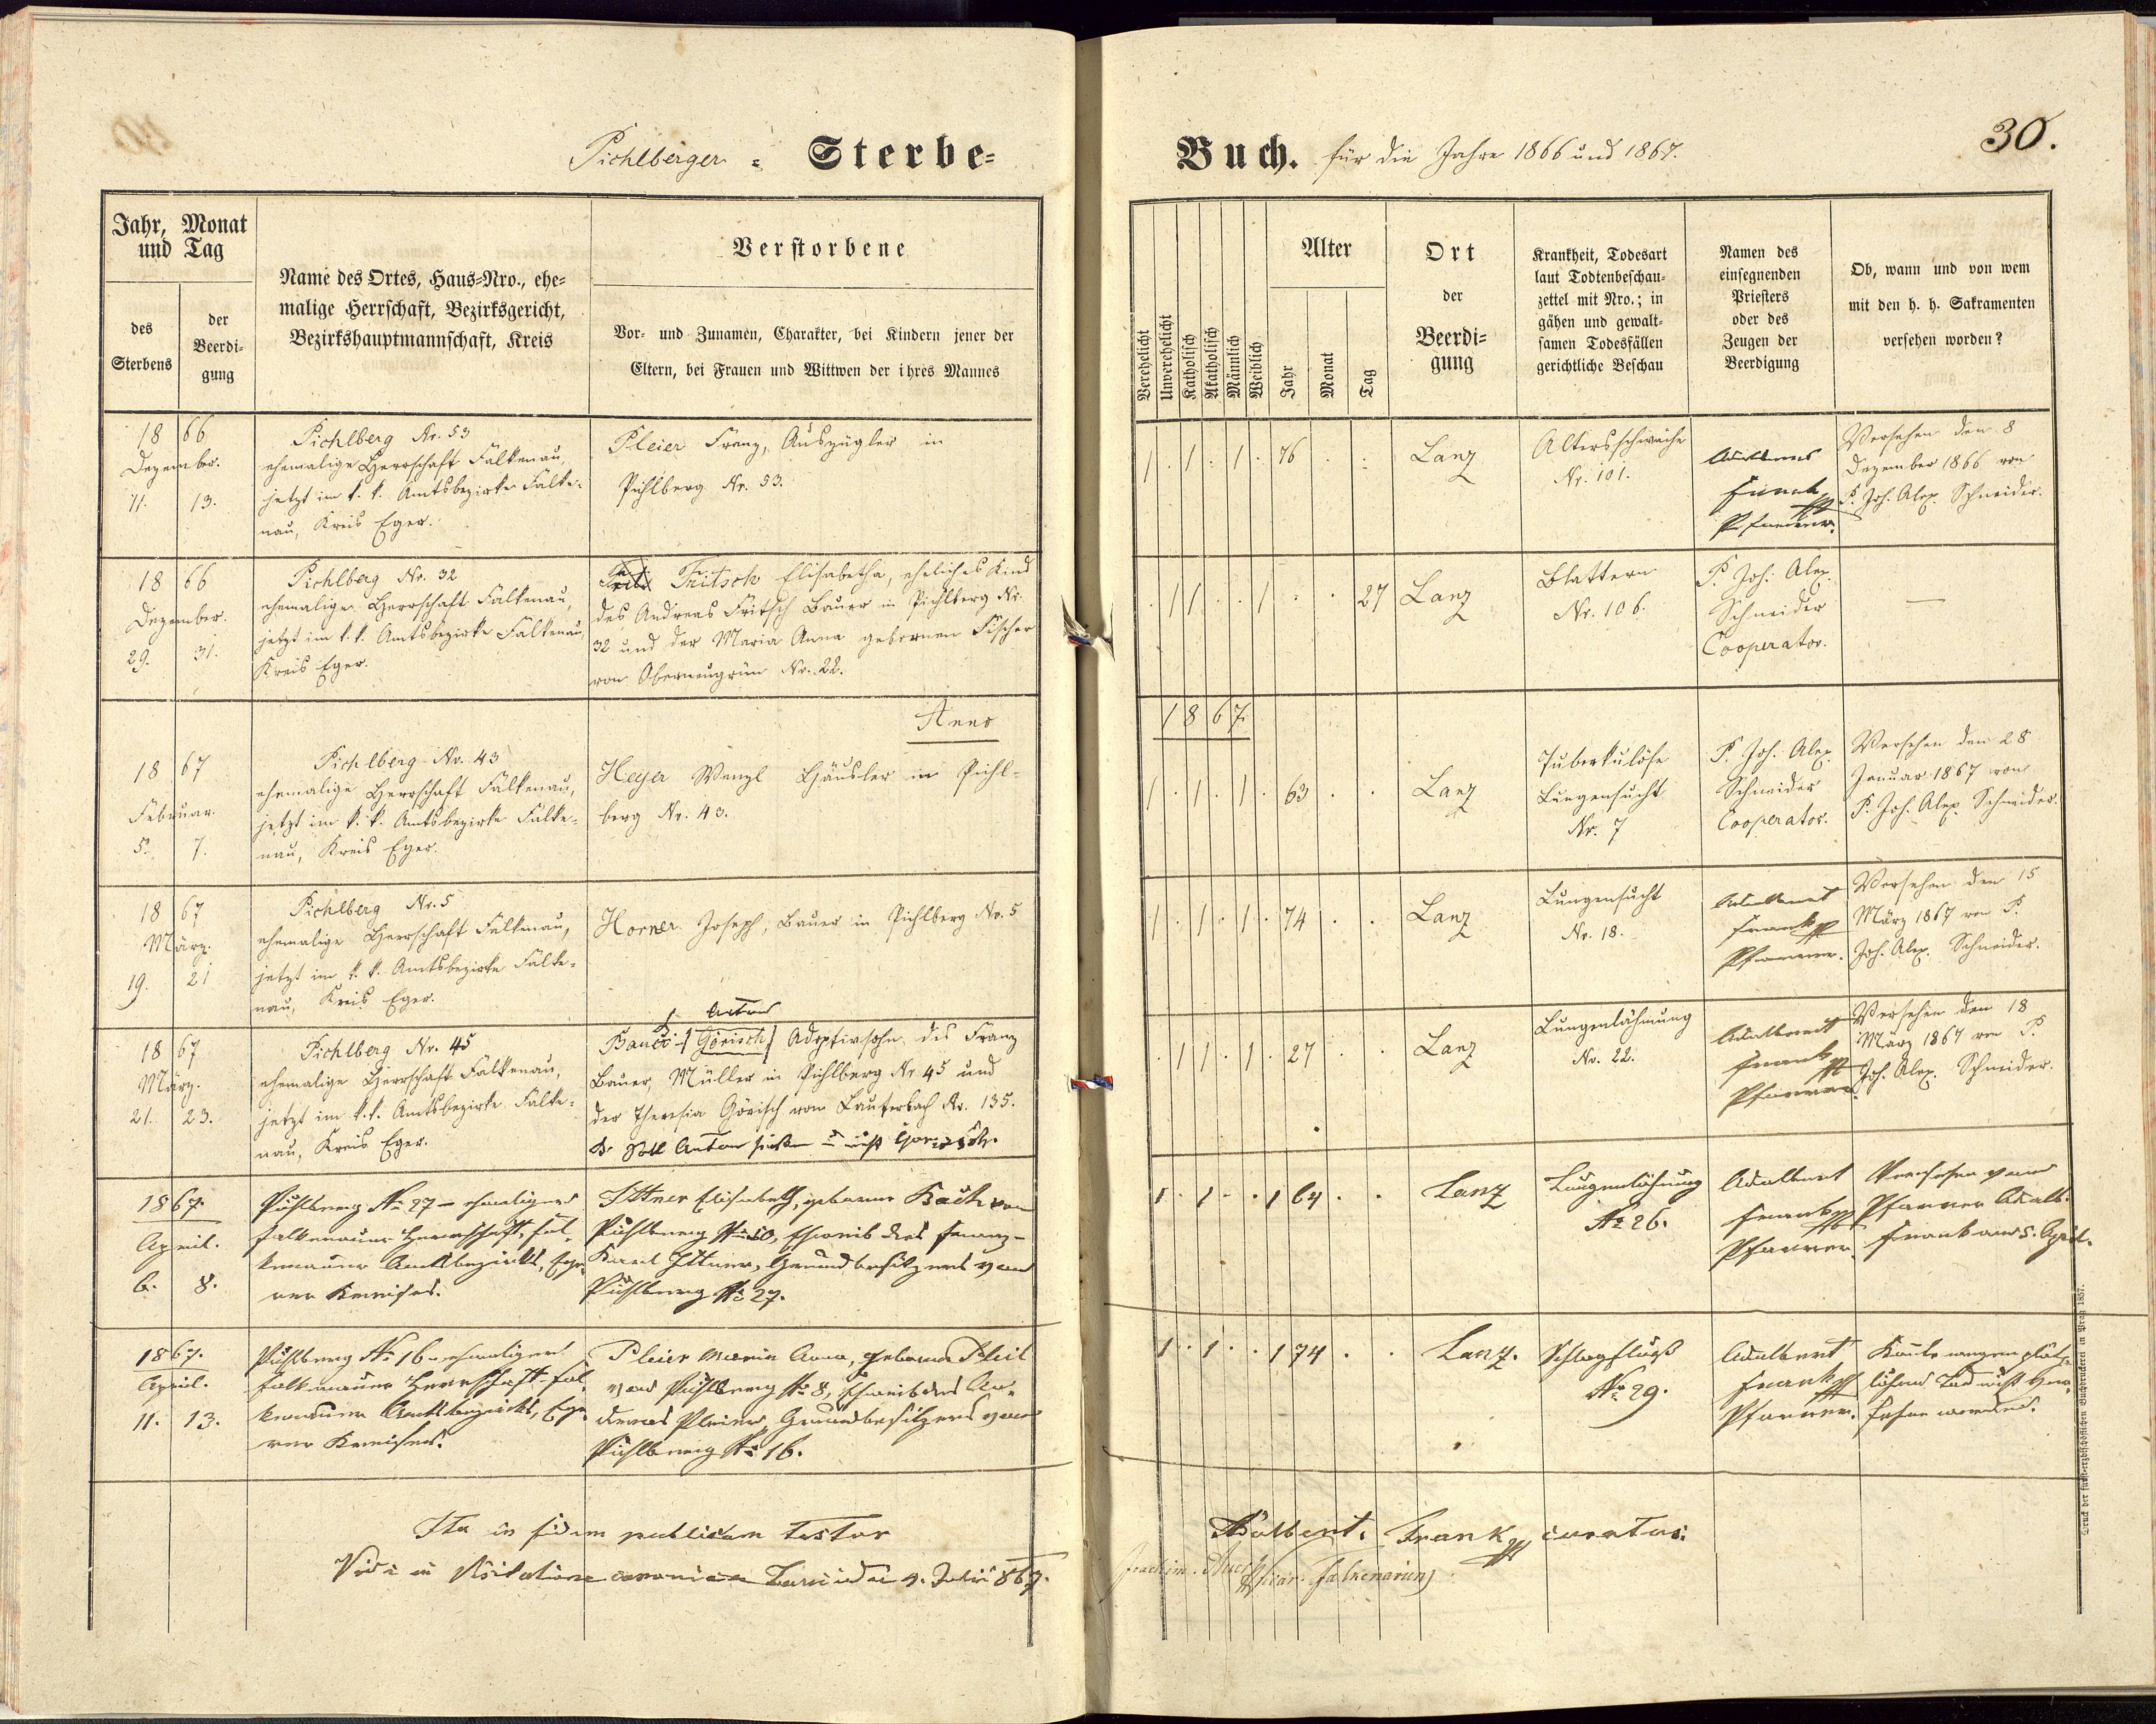 Pichlberger = Sterbe=
Buch. für die Jahre 1866 und 1867.
30.
Jahr, Monat
und Tag
des
Sterbens
der
Beerdi=
gung
Name des Ortes, Haus=Nro., ehe=
malige Herrschaft, Bezirksgericht,
Bezirkshauptmannschaft, Kreis
Verstorbene
Vor= und Zunamen, Charakter, bei Kindern jener der
Eltern, bei Frauen und Wittwen der ihres Mannes
Verehelicht
Unverehelicht
Katholisch
Akatholisch
Männlich
Weiblich
Alter
Jahr
Monat
Tag
Ort
der
Beerdi=
gung
Krankheit, Todesart
laut Todtenbeschau=
zettel mit Nro.; in
gähen und gewalt=
samen Todesfällen
gerichtliche Beschau
Namen des
einsegnenden
Priesters
oder des
Zeugen der
Beerdigung
Ob, wann und von wem
mit den h. h. Sakramenten
versehen worden?
18 66
Dezember.
11. 13.
Pichlberg Nr. 53
ehemalige Herrschaft Falkenau,
jetzt im k. k. Amtsbezirke Falke=
nau, Kreis Eger.
Pleier Franz, Auszügler in
Pichlberg Nr. 53.
1 . 1 . 1 . 76 . .
Lanz
Altersschwäche
Nr. 101.
Adalbert
Frank
Pfarrer.
Versehen den 8
Dezember 1866 von
P. Joh. Alex. Schneider.
18 66
Dezember.
29. 31.
Pichlberg Nr. 32
ehemalige Herrschaft Falkenau,
jetzt im k. k. Amtsbezirke Falkenau,
Kreis Eger.
Fritsch Elisabetha, eheliches Kind
des Andreas Fritsch Bauer in Pichlberg Nr.
32 und der Maria Anna gebornen Fischer
von Oberneugrün Nr. 22.
. 1 1 . . 1 . . 27
Lanz
Blattern
Nr. 106.
P. Joh. Alex.
Schneider
Cooperator.
—
Anno
1867.
18 67
Februar.
5. 7.
Pichlberg Nr. 43
ehemalige Herrschaft Falkenau,
jetzt im k. k. Amtsbezirke Falke=
nau, Kreis Eger.
Heyer Wenzl Häusler in Pichl=
berg Nr. 43.
1 . 1 . 1 . 63 . .
Lanz
Tuberkulöse
Lungensucht
Nr. 7
P. Joh. Alex.
Schneider
Cooperator.
Versehen den 28
Januar 1867 von
P. Joh. Alex. Schneider.
18 67
März.
19. 21
Pichlberg Nr. 5
ehemalige Herrschaft Falkenau,
jetzt im k. k. Amtsbezirke Falke=
nau, Kreis Eger.
Horner Joseph, Bauer in Pichlberg Nr. 5
1 . 1 . 1 . 74 . .
Lanz
Lungensucht
Nr. 18.
Adalbert
Frank
Pfarrer.
Versehen den 15
März 1867 von P.
Joh. Alex. Schneider.
18 67
März.
21. 23.
Pichlberg Nr. 45
ehemalige Herrschaft Falkenau,
jetzt im k. k. Amtsbezirke Falke=
nau, Kreis Eger.
Anton
Bauer Görisch Adoptivsohn des Franz
Bauer, Müller in Pichlberg Nr. 45 und
der Theresia Görisch von Lauterbach Nr. 135.
Soll Anton heißen u nicht Görisch.
. 1 1 . 1 . 27 . .
Lanz
Lungenlähmung
Nr. 22.
Adalbert
Frank
Pfarrer.
Versehen den 18
März 1867 von P.
Joh. Alex. Schneider.
1867.
April.
6. 8.
Pichlberg No 27 – ehmaliger
Falkenauer Herrschaft, Fal=
kenauer Amtsbezirks, Ege=
rer Kreises.
Ittner Elisabeth, geborne Bach von
Pichlberg No 50, Eheweib des Franz
Karl Ittner, Grundbesitzers von
Pichlberg No 27.
1 . 1 . . 1 64 . .
Lanz
Lungenlähmung
No 26.
Adalbert
Frank
Pfarrer.
Versehen vom
Pfarrer Adalb.
Frank am 5. April.
1867.
April.
11. 13.
Pichlberg No 16 – ehmaliger
Falkenauer Herrschaft – Fal=
kenauer Amtsbezirks, Ege=
rer Kreises.
Pleier Maria Anna, geborne Pleil
von Pichlberg No 8, Eheweib des An=
dreas Pleier, Grundbesitzers von
Pichlberg No 16.
1 . 1 . . 1 74 . .
Lanz.
Schlagfluß
No 29.
Adalbert
Frank
Pfarrer.
Konnte wegen plötz=
lichem Tod nicht ver=
sehen werden.
Ita in fidem publicam testor
Adalbert Frank curatus.
Vidi in Visitatione canonica Lanz die 4. Julii 867.
Druck der fürsterzbischöflichen Buchdruckerei in Prag 1857.